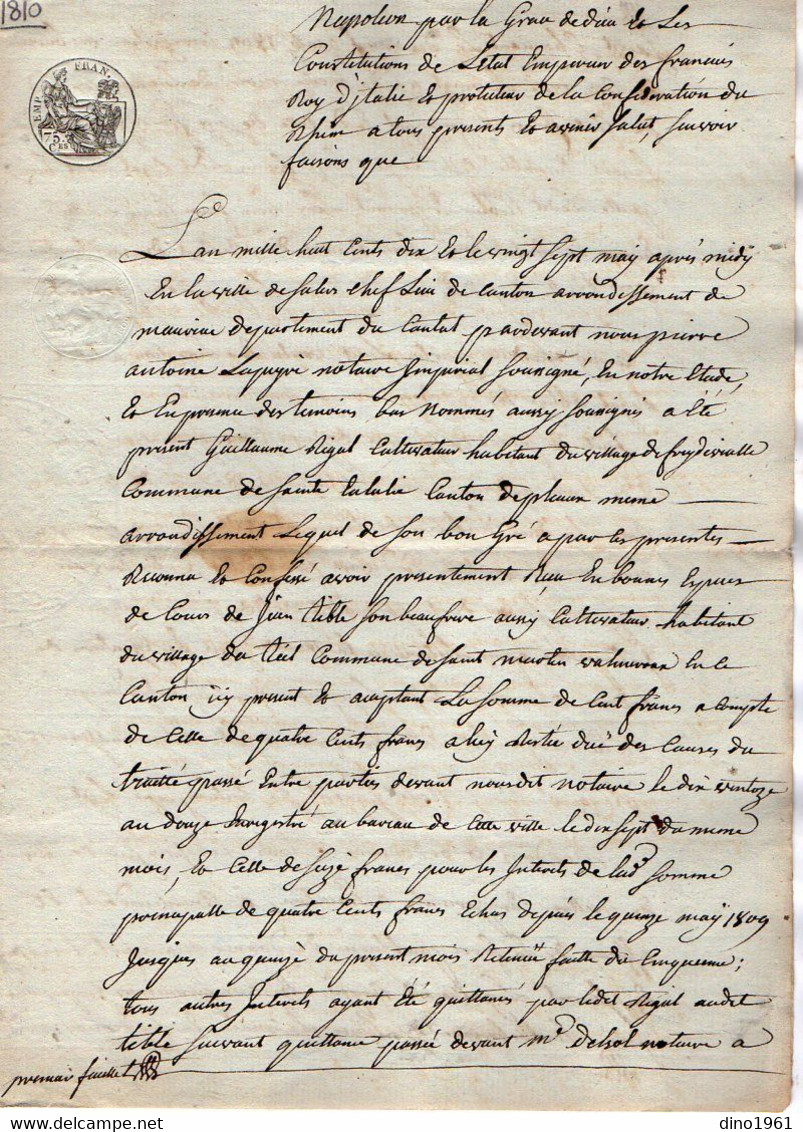 1810
Napoleon par la Grace de dieu et Les
EMP. FRAN.
Constitutions de Letat Empereur des francais
Roy D'italie et protecteur de la Confideration du
75 CES
Rhin a tous presents et avenir Salut, scavoir
faisons que
L'an mille huit Cents dix et le vingt sept may après midy
En la ville de salers chef Lieu de Canton arrondissement de
mauriac departement du Cantal pardevant nous pierre
antoine Lapeyre notaire Imperial soussigné, En notre Etude,
et En presence des temoins bas Nommés aussy soussignés a Eté
present Guillaume Rigal Cultivateur habitant du village de freydevialle
Commune de Sainte Eulalie Canton de pleaux meme
arrondissement Lequel de son bon Gré a par les presentes
Reconnu et Confessé avoir presentement Recu En bonnes Especes
de Cours de Jean tible son beaufrere aussy Cultivateur habitant
du village du teil Commune de Saint martin valmeroux En Ce
Canton icy present et acceptant La somme de Cent francs a Compte
de Celle de quatre Cents francs a luy Restée duë des Causes du
traitté passé Entre parties devant nousdit notaire le dix ventoze
an douze Enregistré au bureau de Cette ville le dix sept du meme
mois, et Celle de seize francs pour les Interets de lad. somme
principalle de quatre Cents francs Echus depuis le quinze may 1809
Jusques au quinze du present mois Retenüe faitte du Cinquieme;
tous autres Interets ayant Eté quittancés par ledit Rigal audit
tible suivant quittance passée devant me. delsol notaire a
premier feuillet
dino1961